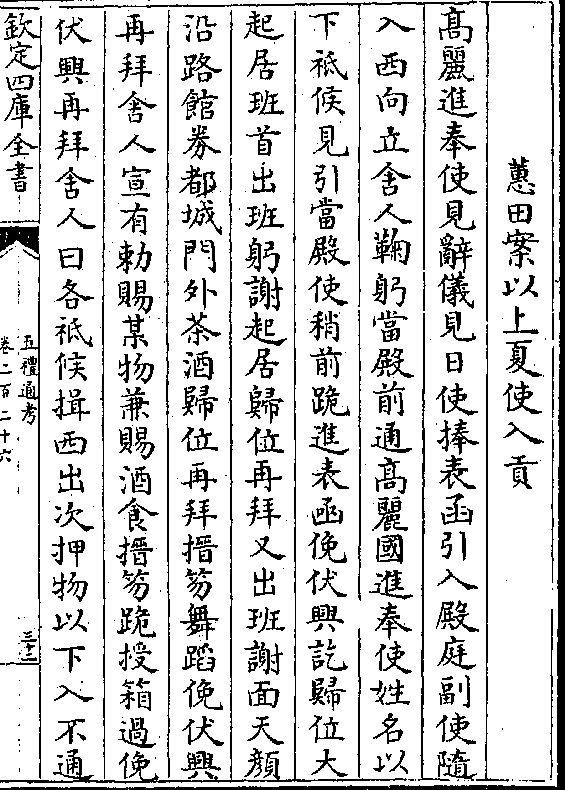 蕙田案以上夏使入貢
髙麗進奉使見辭儀見日使捧表函引入殿庭副使隨
入西向立舍人鞠躬當殿前通髙麗國進奉使姓名以
下祗候見引當殿使稍前跪進表函俛伏興訖歸位大
起居班首出班躬謝起居歸位再拜又出班謝面天顔
沿路館券都城門外茶酒歸位再拜搢笏舞蹈俛伏興
再拜舍人宣有勅賜某物兼賜酒食搢笏跪授箱過俛
伏興再拜舍人曰各祗候揖西出次押物以下入不通
欽定四庫全書
五禮通考
卷二百二十六
三十二